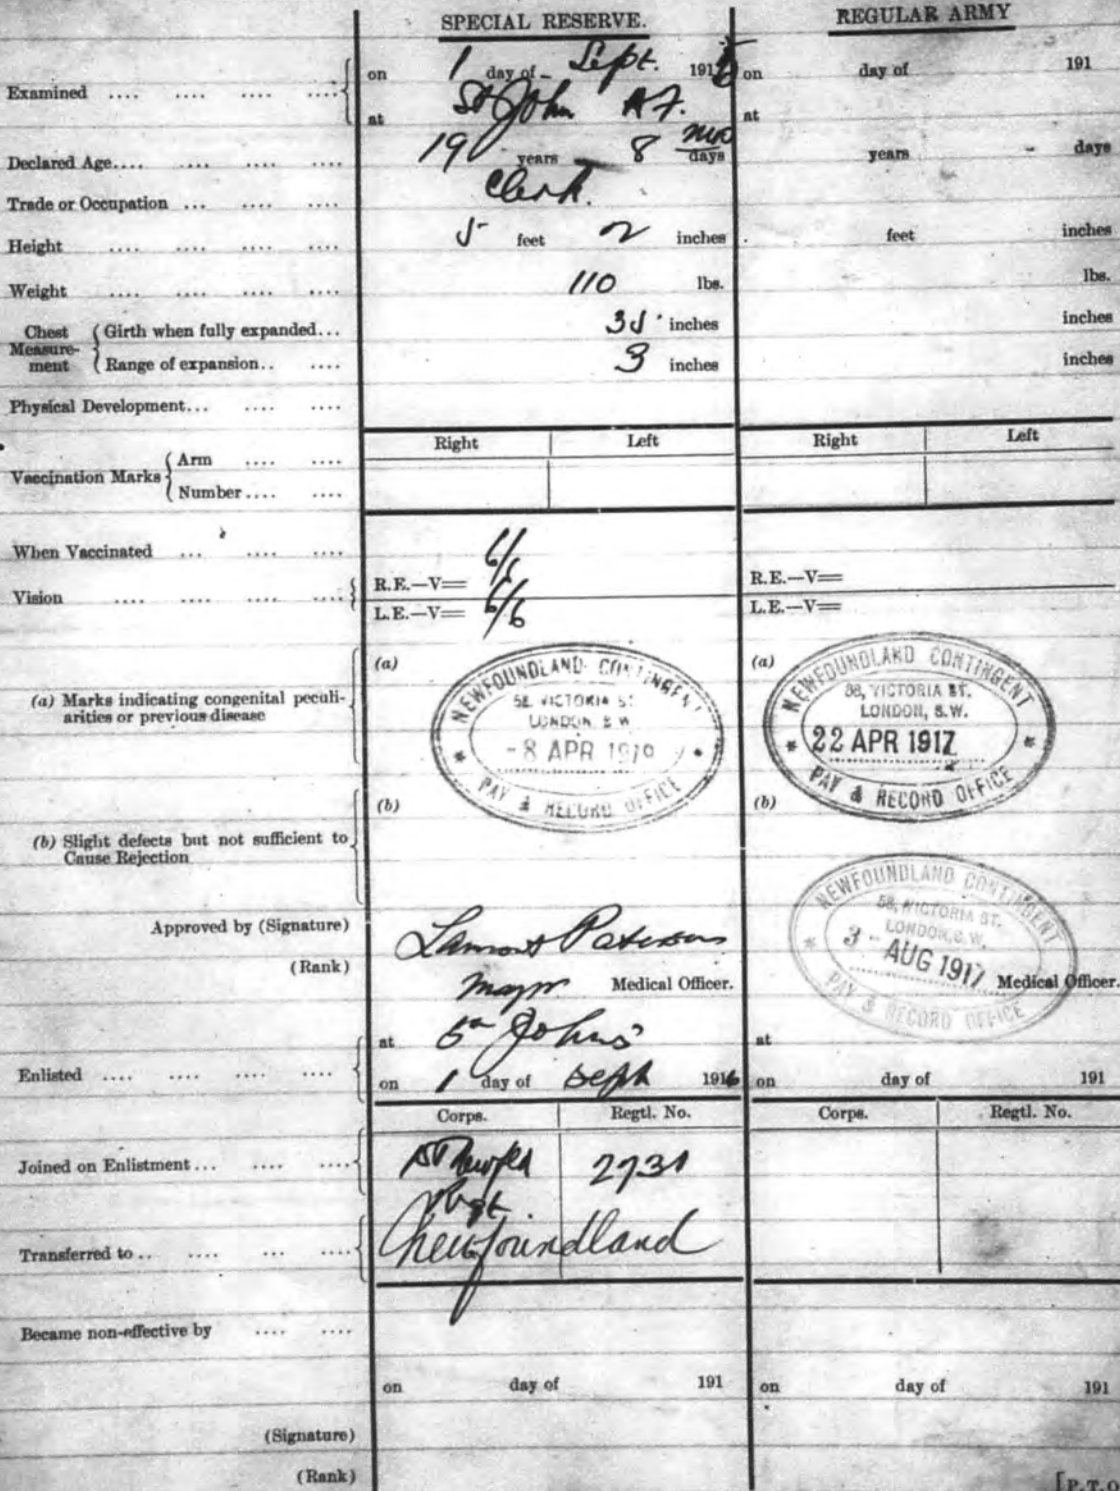 SPECIAL RESERVE. REGULAR ARMY
Examined .... .... .... .... on 1 day of Sept. 1916 on day of 191
at St John N.F. at
Declared Age.... .... .... .... 19 years 8 mos days years days
Trade or Occupation ... .... .... Clerk.
Height .... .... .... .... 5 feet 2 inches feet inches
Weight .... .... .... .... 110 lbs. lbs.
Chest Measure-ment Girth when fully expanded... 35 inches inches
Range of expansion.. .... 3 inches inches
Physical Development... .... ....
Right Left Right Left
Vaccination Marks Arm .... ....
Number.... ....
When Vaccinated ... .... ....
Vision .... .... .... .... R.E.—V= 6/6 R.E.—V=
L.E.—V= 6/6 L.E.—V=
(a) Marks indicating congenital peculi-
arities or previous disease
(a) (a)
NEWFOUNDLAND CONTINGENT
58, VICTORIA ST.
LONDON, S.W.
-8 APR 1919
PAY & RECORD OFFICE
NEWFOUNDLAND CONTINGENT
58, VICTORIA ST.
LONDON, S.W.
22 APR 1917
PAY & RECORD OFFICE
(b) Slight defects but not sufficient to
Cause Rejection
(b) (b)
NEWFOUNDLAND CONTINGENT
58, VICTORIA ST.
LONDON, S.W.
3 - AUG 1917
PAY & RECORD OFFICE
Approved by (Signature) Lamont Paterson
(Rank) Major Medical Officer. Medical Officer.
at St Johns at
Enlisted .... .... .... .... on 1 day of Sept 1916 on day of 191
Corps. Regtl. No. Corps. Regtl. No.
Joined on Enlistment... .... .... Newfld 2731
Regt.
Transferred to .. .... ... .... Newfoundland
Became non-effective by .... ....
on day of 191 on day of 191
(Signature)
(Rank)
[P.T.O